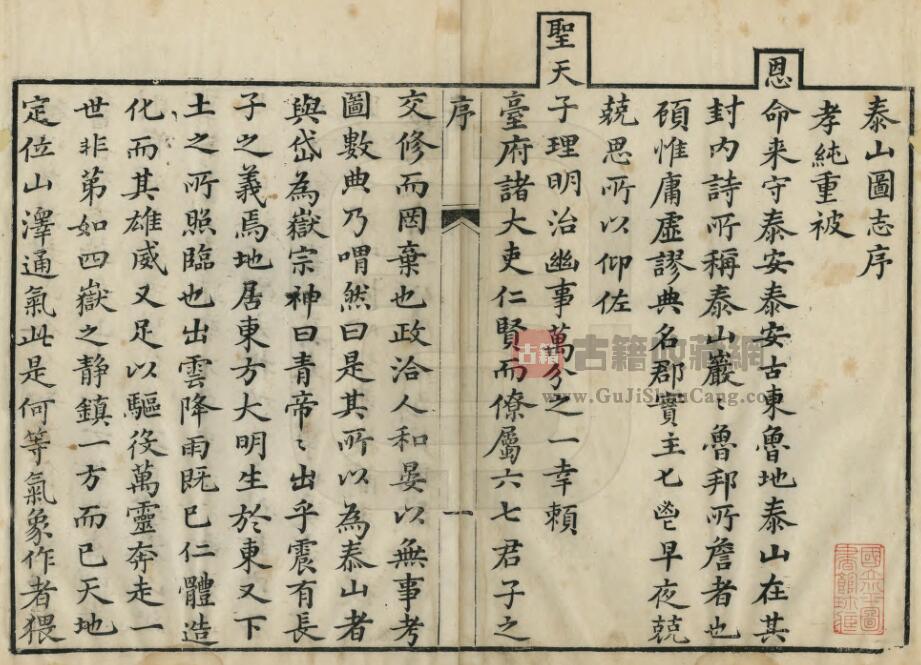 泰山圖志序
孝純重被
恩命来守泰安泰安古東魯地泰山在其
封内詩所稱泰山巖〻魯邦所詹者也
頋惟庸虚謬典名郡實主七鬯早夜兢
兢思所以仰佐
聖天子理明治幽事萬分之一幸頼
臺府諸大吏仁賢而僚屬六七君子之
序
一
交修而罔棄也政洽人和晏以無事考
圖數典乃喟然曰是其所以為泰山者
與岱為嶽宗神曰青帝〻出乎震有長
子之義焉地居東方大明生於東又下
土之所照臨也出雲降雨既已仁體造
化而其雄威又足以驅役萬靈奔走一
世非第如四嶽之静鎮一方而已天地
定位山澤通氣此是何等氣象作者猥
古籍
古籍收藏網
www.GuJiShouCang.com